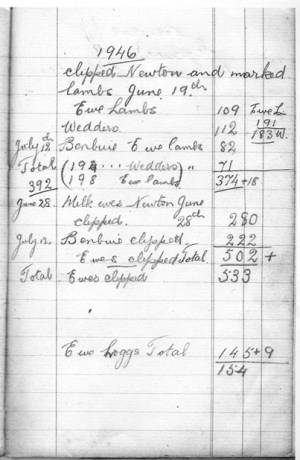 1946
clipped Newton and marked
lambs June 19th
Ewe Lambs 109 Ewe L.
191
Wedders 112 183 W.
July 12th Benbuie Ewe lambs 82
Total (194 ... Wedders) " 71
392 (198 Ewe lambs 374+18
June 28. Milk ewes Newton June
clipped. 28th 280
July 12. Benbuie clipped 222
Ewes clipped Total 502 +
Total Ewes clipped 533
Ewe hoggs Total 145+9
154